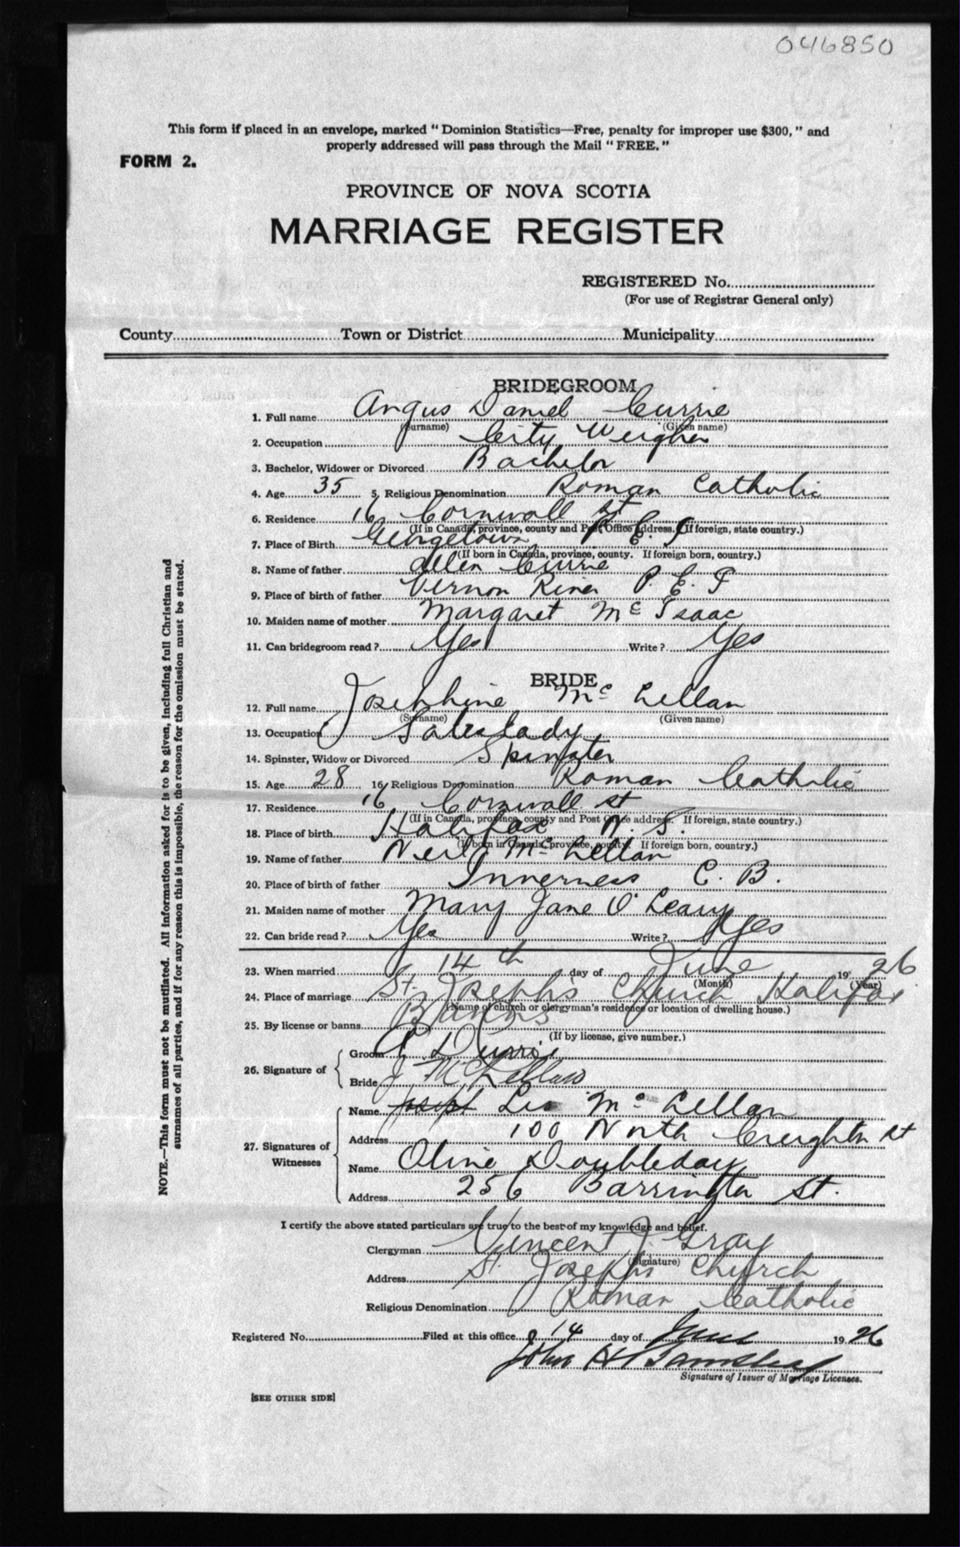 046850
This form if placed in an envelope, marked "Dominion Statistics—Free, penalty for improper use $300," and
properly addressed will pass through the Mail "FREE."
FORM 2.
PROVINCE OF NOVA SCOTIA
MARRIAGE REGISTER
REGISTERED No.
(For use of Registrar General only)
County Town or District Municipality
BRIDEGROOM
1. Full name Angus Daniel Currie
(Surname) (Given name)
2. Occupation City Weigher
3. Bachelor, Widower or Divorced Bachelor
4. Age 35 5. Religious Denomination Roman Catholic
6. Residence 16 Cornwall St
(If in Canada, province, county and Post Office Address. If foreign, state country.)
7. Place of Birth Georgetown P. E. I
(If born in Canada, province, county. If foreign born, country.)
8. Name of father Allen Currie
9. Place of birth of father Vernon River P. E. I
10. Maiden name of mother Margaret Mc Isaac
11. Can bridegroom read? Yes Write? Yes
BRIDE
12. Full name Josephine Mc Lellan
(Surname) (Given name)
13. Occupation Saleslady
14. Spinster, Widow or Divorced Spinster
15. Age 28 16. Religious Denomination Roman Catholic
17. Residence 16 Cornwall st
(If in Canada, province, county and Post Office address. If foreign, state country.)
18. Place of birth Halifax N. S.
(If born in Canada, province, county. If foreign born, country.)
19. Name of father Neil Mc Lellan
20. Place of birth of father Inverness C. B.
21. Maiden name of mother Mary Jane O'Leary
22. Can bride read? Yes Write? Yes
23. When married 14th day of June 1926
(Month) (Year)
24. Place of marriage St. Josephs Church Halifax
(Name of church or clergyman's residence or location of dwelling house.)
25. By license or banns Banns
(If by license, give number.)
26. Signature of
Groom A D Currie
Bride J McLellan
27. Signatures of Witnesses
Name Joseph Leo Mc Lellan
Address 100 North Creighton St
Name Olive Doubleday
Address 256 Barrington St.
I certify the above stated particulars are true to the best of my knowledge and belief.
Clergyman Vincent J. Gray
(Signature)
Address St. Josephs Church
Religious Denomination Roman Catholic
Registered No. Filed at this office 14 day of June 1926
John H
Signature of Issuer of Marriage Licenses.
[SEE OTHER SIDE]
NOTE.—This form must not be mutilated. All information asked for is to be given, including full Christian and
surnames of all parties, and if for any reason this is impossible, the reason for the omission must be stated.